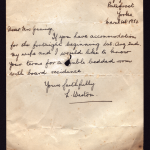 Pontefract
Yorks
March 1st 1936
Dear Mrs
If you have accommodation
for the fortnight beginning 1st Aug and
my wife and I would like to know
your terms for a double bedded room
with board residence.
Yours faithfully
L Weston